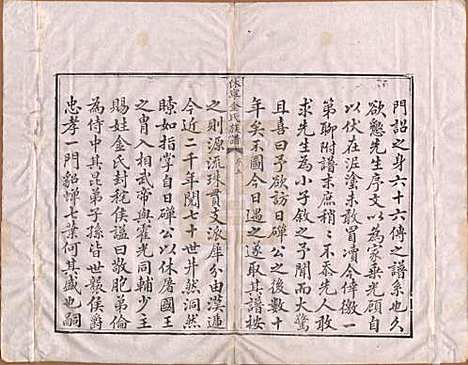 門詔之身六十六傳之譜系也久
欲懇先生序文以為家乘光顧自
愧伏在泥塗未敢冒瀆今倖徼一
第聊附譜末庶稍〻不忝先人敢
求先生為小子敘之予聞而大驚
且喜曰予欲訪日磾公之後數十
年矣不圖今日遇之遂取其譜按
休寧金氏族譜
之則源流珠貫支派犀分由漢迤
今近二千年閱七十世井然洞然
瞭如指掌自日磾公以休屠國王
之胄入相武帝與霍光同輔少主
賜姓金氏封秺侯謚曰敬胞弟倫
為侍中其昆弟子孫皆世襲侯爵
忠孝一門貂蟬七葉何其盛也嗣